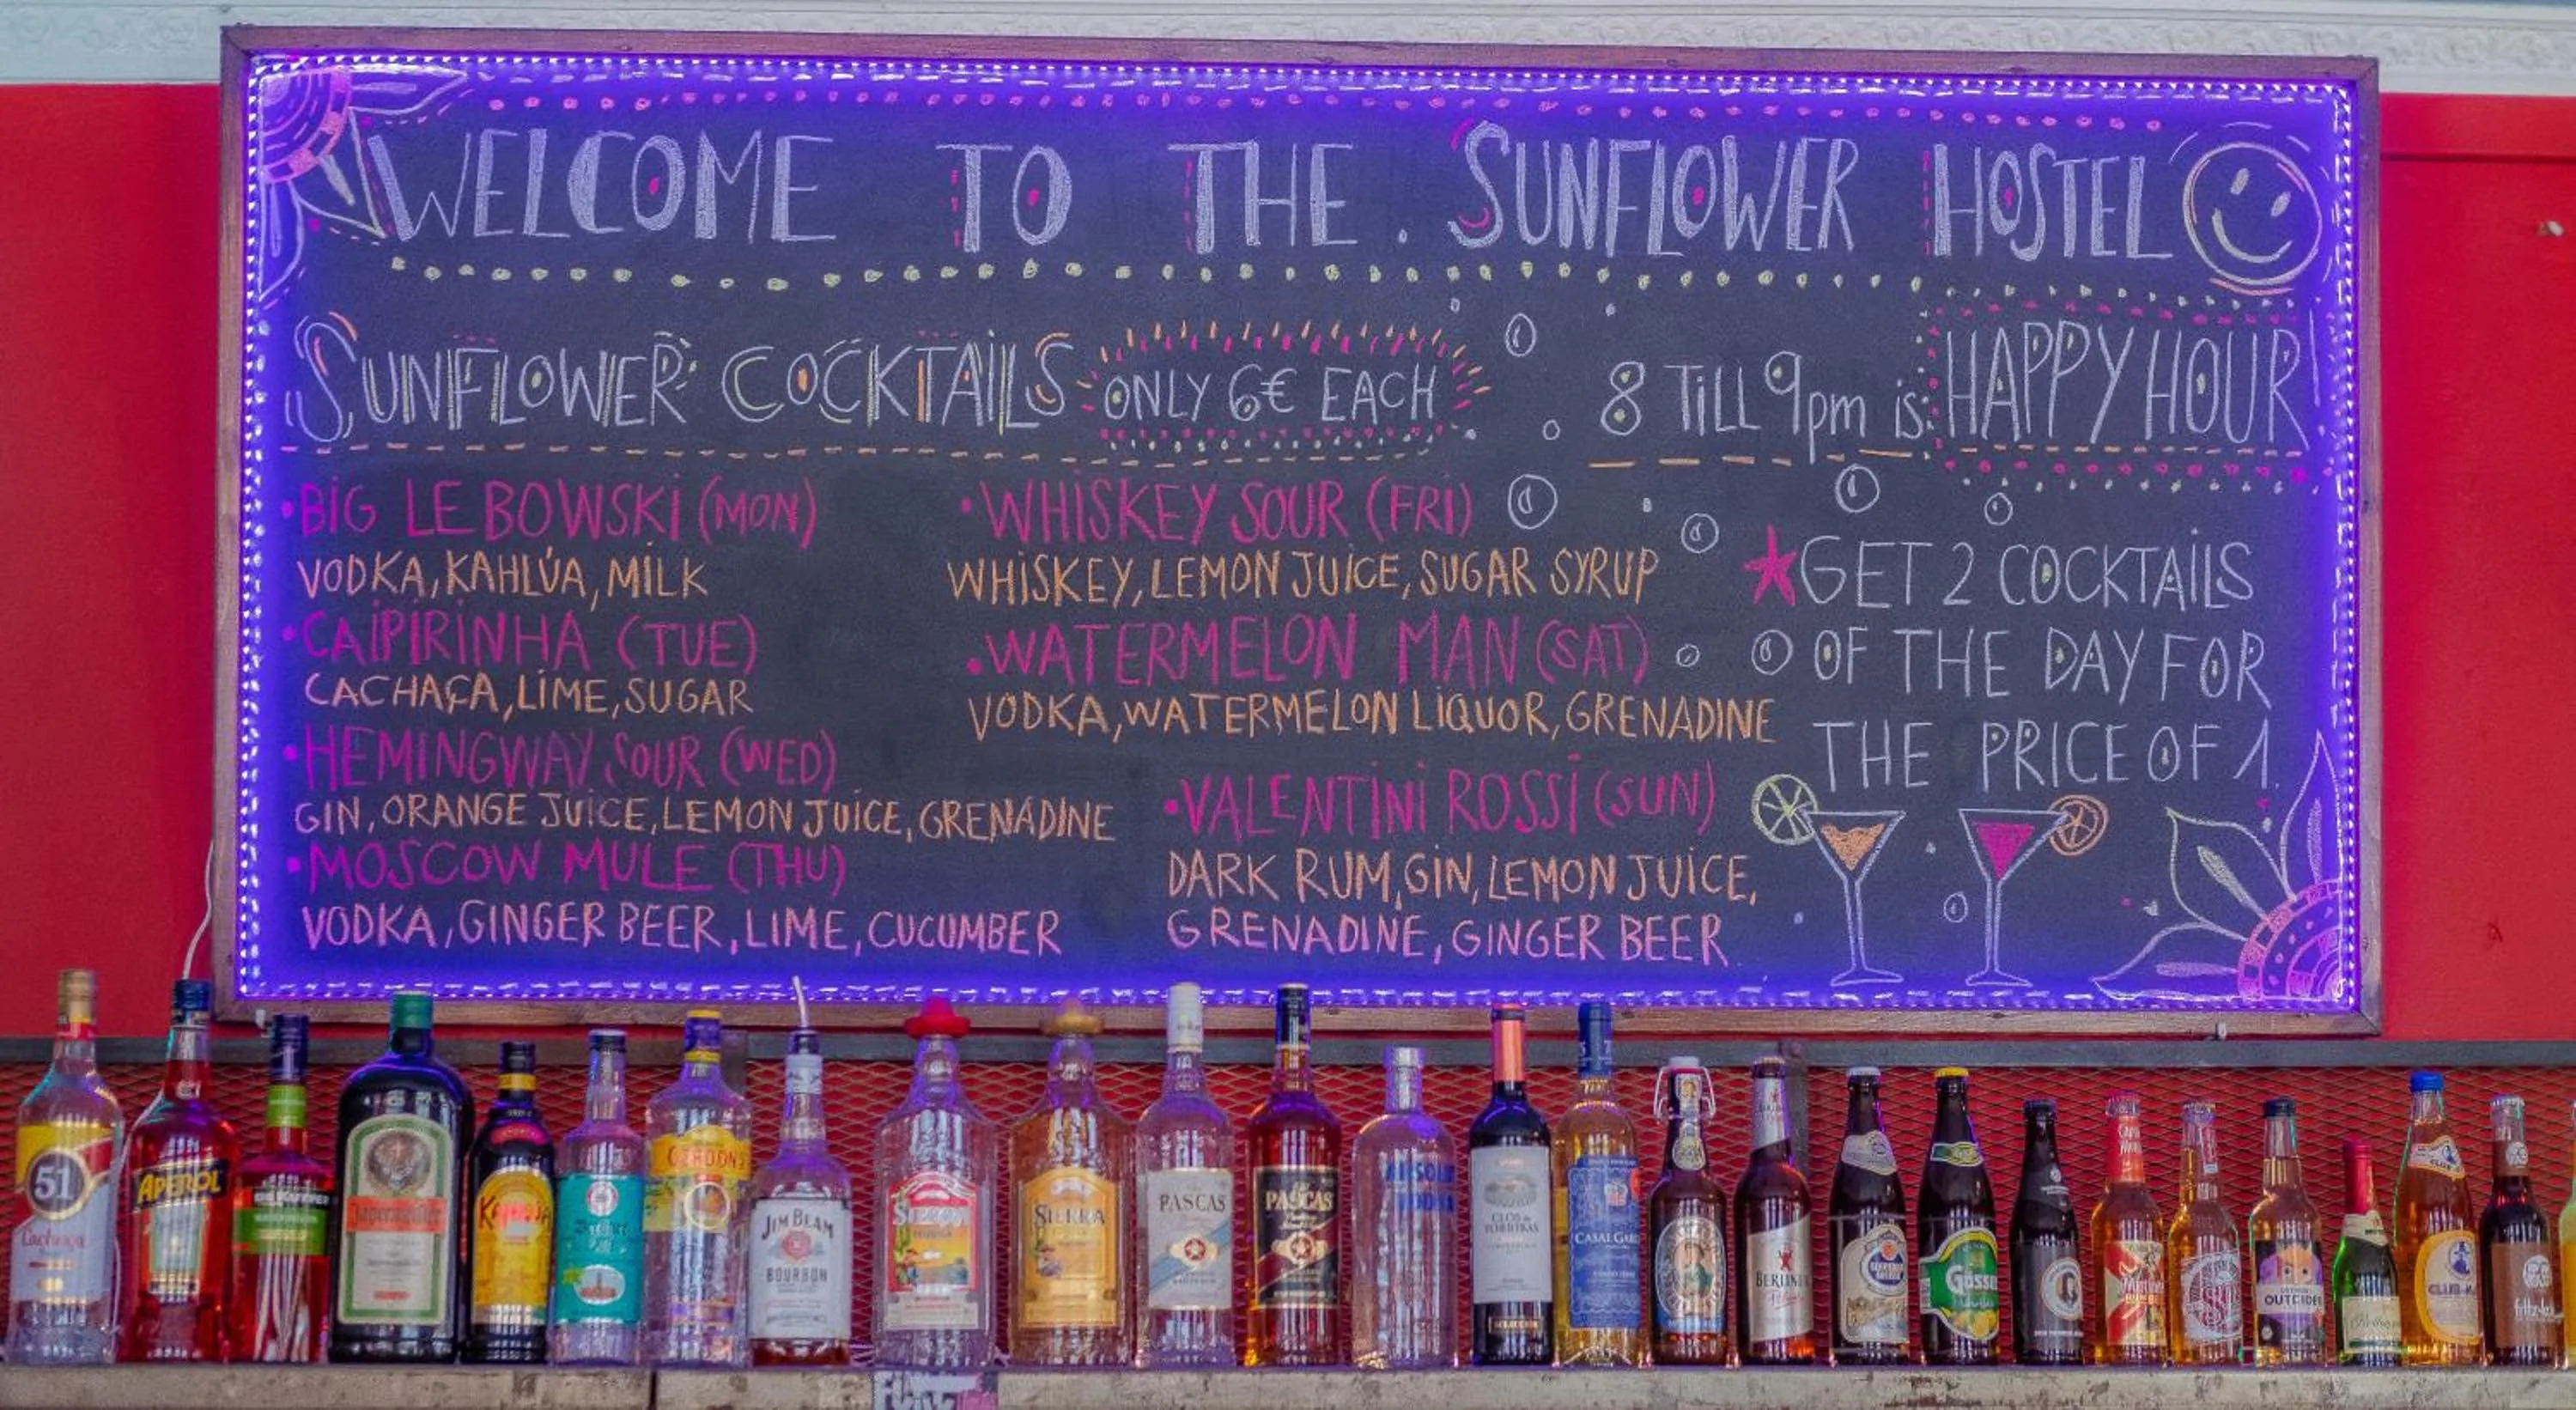 WELCOME TO THE . SUNFLOWER HOSTEL
SUNFLOWER COCKTAILS ONLY 6€ EACH
8 TILL 9pm is: HAPPY HOUR!
•BIG LEBOWSKI (MON)
VODKA, KAHLÚA, MILK
•CAIPIRINHA (TUE)
CACHAÇA, LIME, SUGAR
•HEMINGWAY SOUR (WED)
GIN, ORANGE JUICE, LEMON JUICE, GRENADINE
•MOSCOW MULE (THU)
VODKA, GINGER BEER, LIME, CUCUMBER
•WHISKEY SOUR (FRI)
WHISKEY, LEMON JUICE, SUGAR SYRUP
•WATERMELON MAN (SAT)
VODKA, WATERMELON LIQUOR, GRENADINE
•VALENTINI ROSSI (SUN)
DARK RUM, GIN, LEMON JUICE,
GRENADINE, GINGER BEER.
GET 2 COCKTAILS
OF THE DAY FOR
THE PRICE OF 1.
51
Cachaça
APEROL
Jägermeister
KAHLÚA
GORDON'S
JIM BEAM
BOURBON
SIERRA
SIERRA
PASCAS
PASCAS
ABSOLUT
VODKA
CLOS de
TORRIBAS
CASAL GARCIA
BERLINER
Gösser
OUTCIDER
CLUB-M